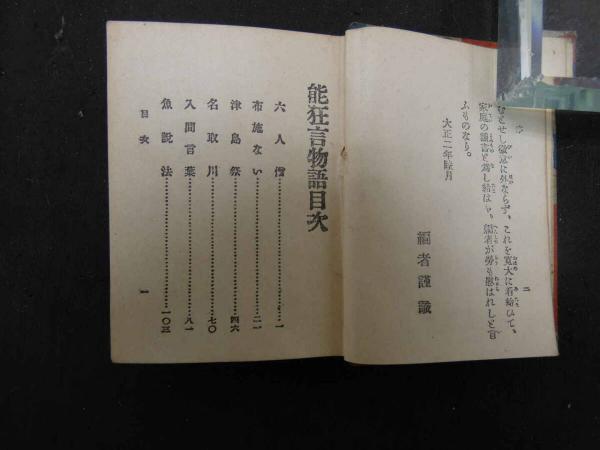 序
二
むとせし微意に外ならず、これを寛大に看給ひて、
家庭の謡言と為し給はゞ、編者が労も慰はれしと言
ふものなり。
大正二年睦月
編者謹識
能狂言物語目次
六人僧…………一
布施ない…………二一
津島祭…………四六
名取川…………七〇
入間言葉…………八一
魚説法…………一〇三
目次
一